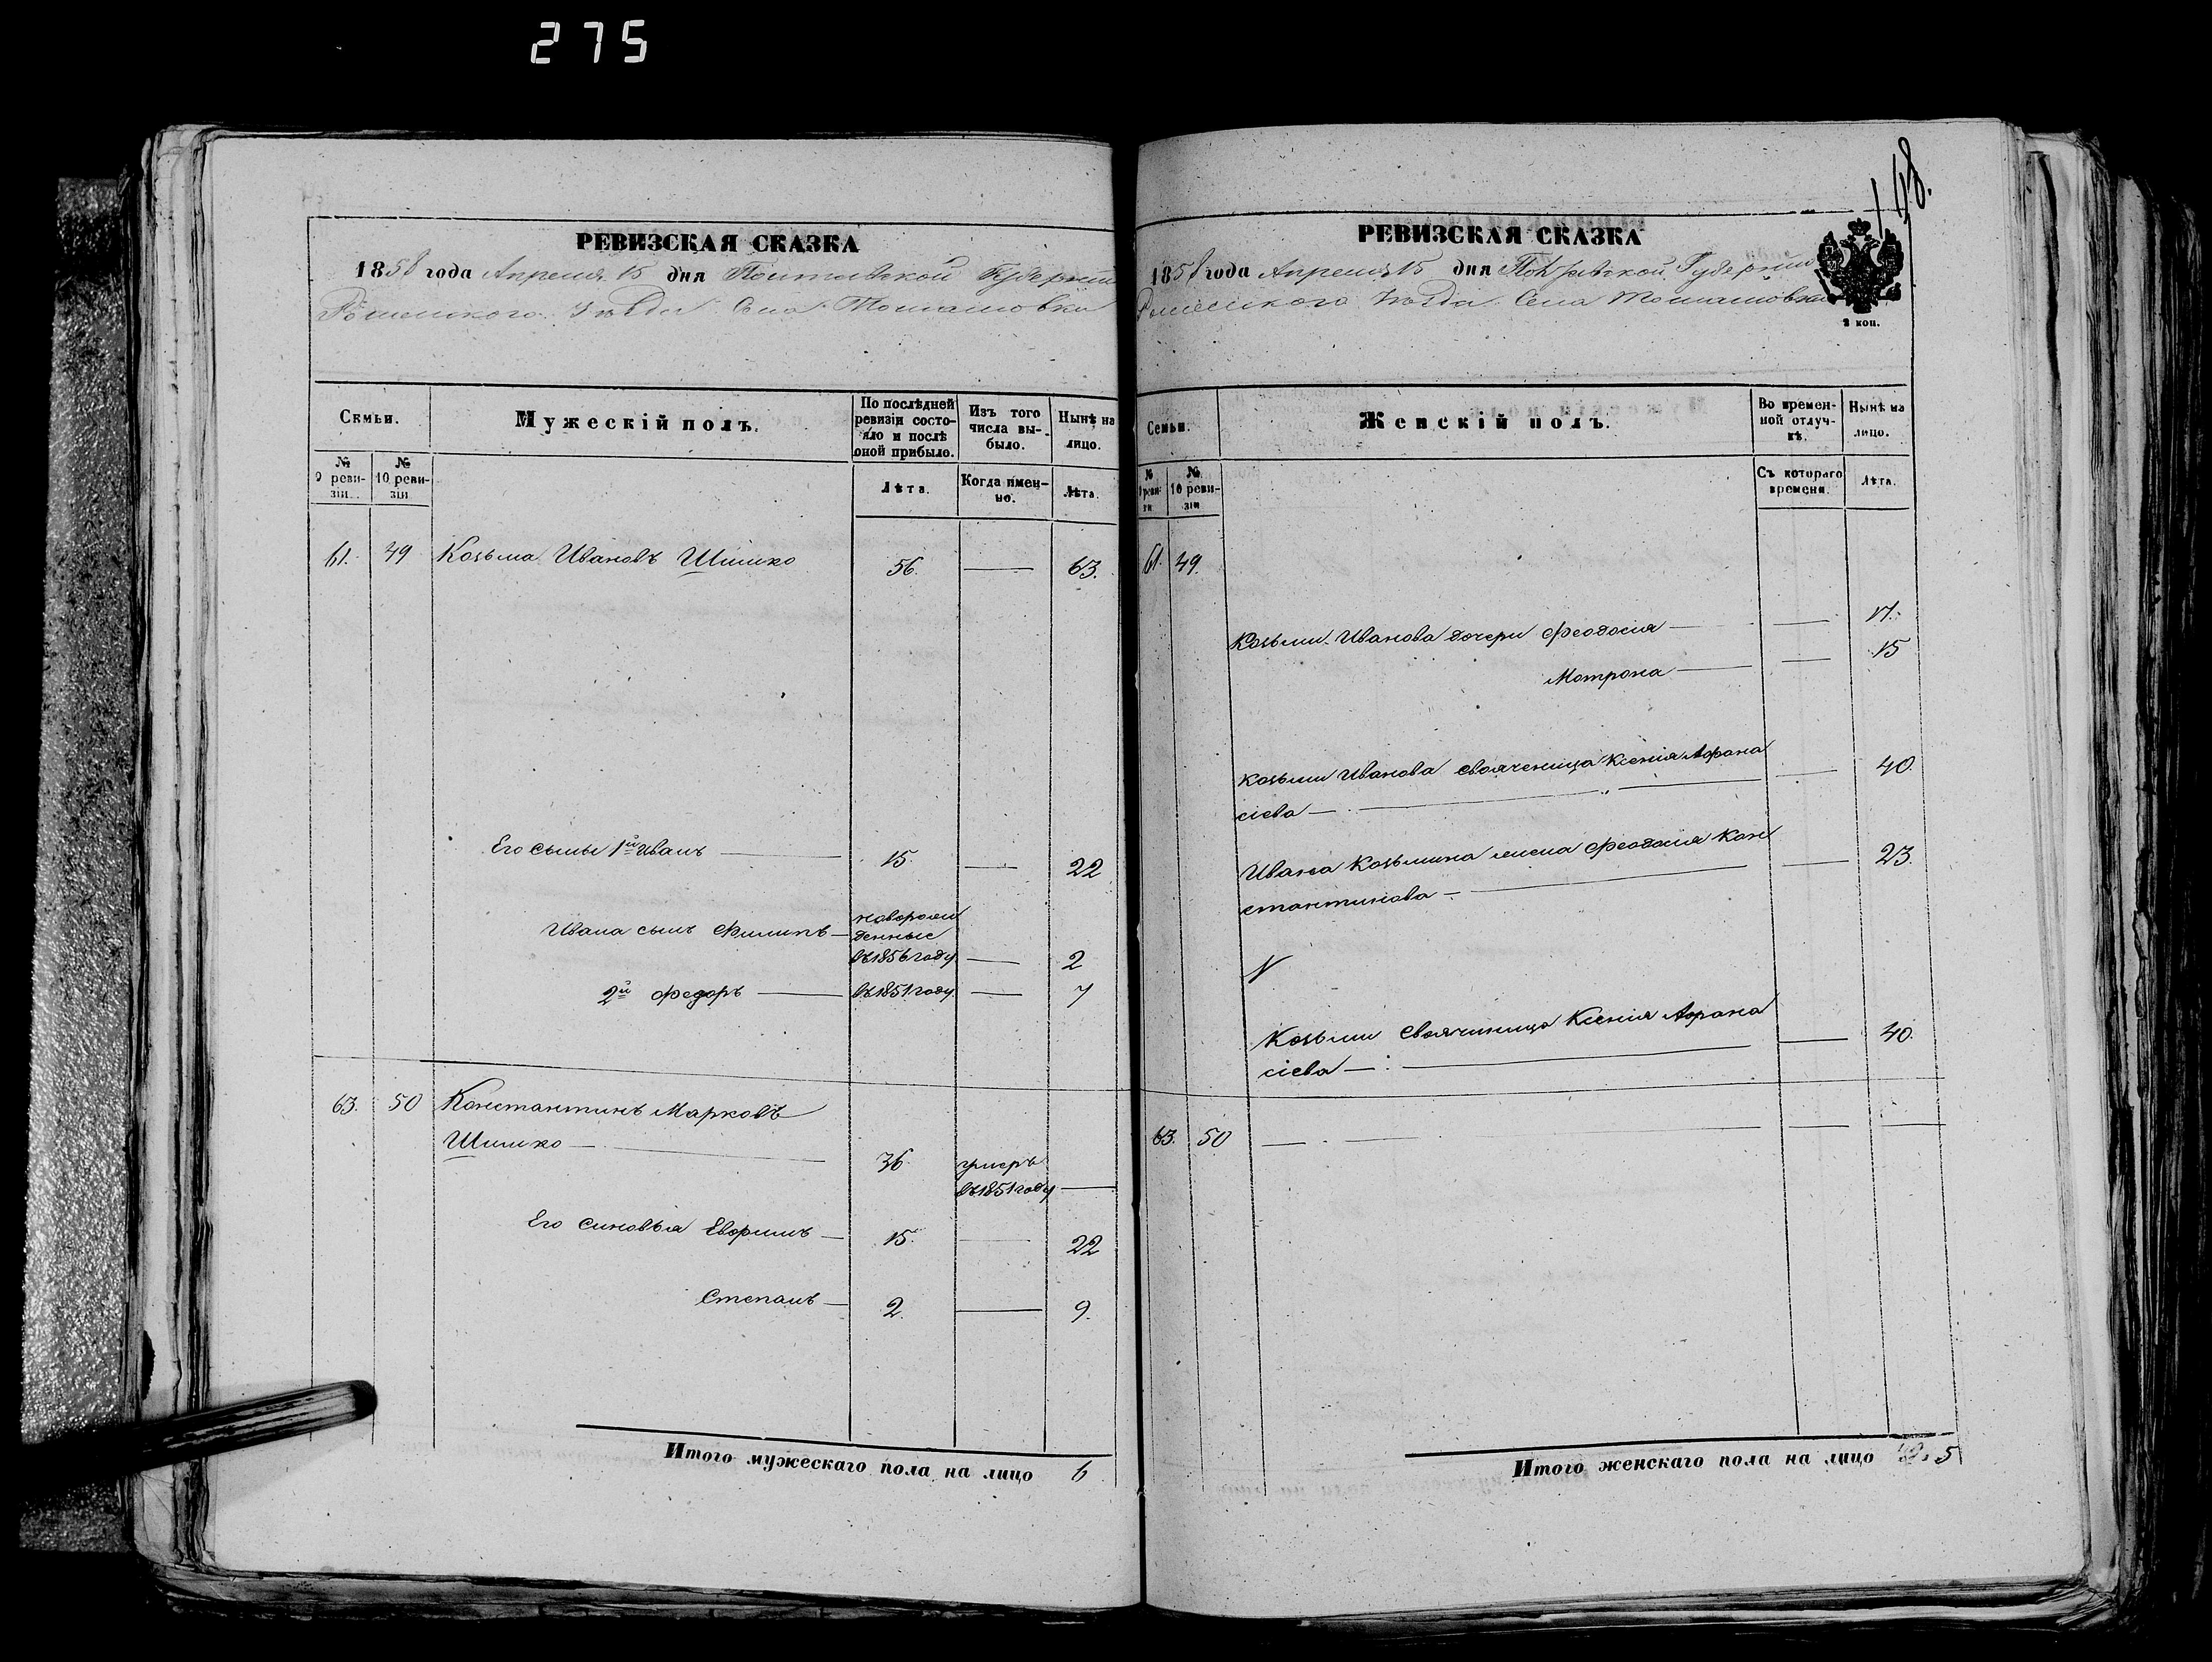 275
148.
РЕВИЗСКАЯ СКАЗКА
1858 года Апреля 15 дня Полтавской Губернии
Роменского Уезда Села Томашовки
Семьи.
Мужескій полъ.
По послѣдней ревизіи состояло и послѣ оной прибыло.
Изъ того числа выбыло.
Нынѣ на лицо.
№ 9 ревизіи.
№ 10 ревизіи
Лѣта.
Когда именно.
Лѣта.
61. 49 Козьма Ивановъ Шишко 56. — 63.
Его сыны 1й Иванъ — 15. — 22
Ивана сынъ Филипъ — новорожденные въ 1856 году — 2
2й Федоръ — въ 1851 году. — 7
63. 50 Константинъ Марковъ
Шишко — 36. умеръ
въ 1851 году —
Его синовья Евфимъ — 15. — 22
Степанъ — 2. — 9.
Итого мужескаго пола на лицо 6
РЕВИЗСКАЯ СКАЗКА
1858 года Апреля 15 дня Полтавской Губернии
Роменского Уезда Села Томашовки
2 коп.
Семьи.
Женскій полъ.
Во временной отлучкѣ.
Нынѣ на лицо.
№ 9 ревизіи
№ 10 ревизіи
Съ котораго времени.
Лѣта.
61. 49.
Козьми Иванова дочери Феодосія — — 17.
Мотрона — — 15
Козьми Иванова свояченица Ксенія Афана
сіева — — 40.
Ивана Козьмина жена Феодосія Кон
стантинова — — 23.
Козьми Своячиница Ксенія Афана
сіева — — 40.
63. 50 — — —
Итого женскаго пола на лицо 5